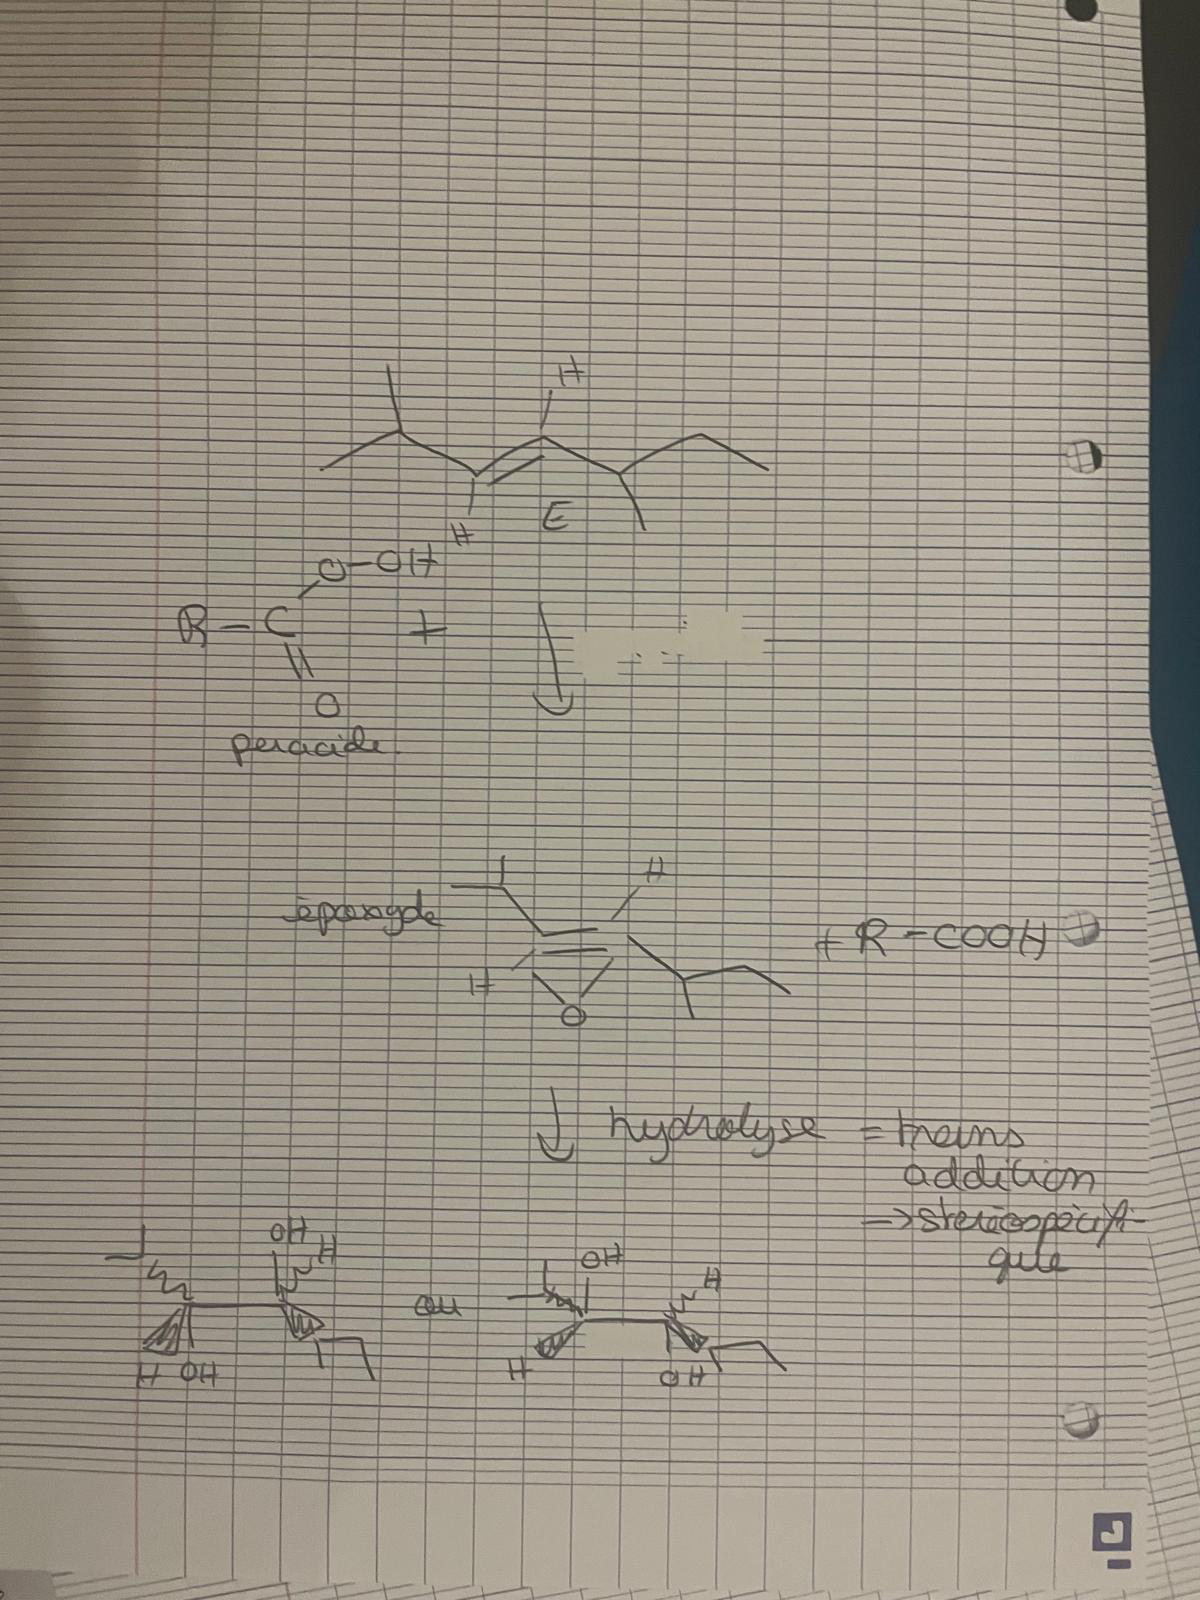 H
H
E
O-OH
R-C
+
O
peracide.
H
époxyde
+ R-COOH
H
O
hydrolyse = trans
addition
-> stéréospécifi-
que
OH
H
OH
H
ou
H
OH
H
OH